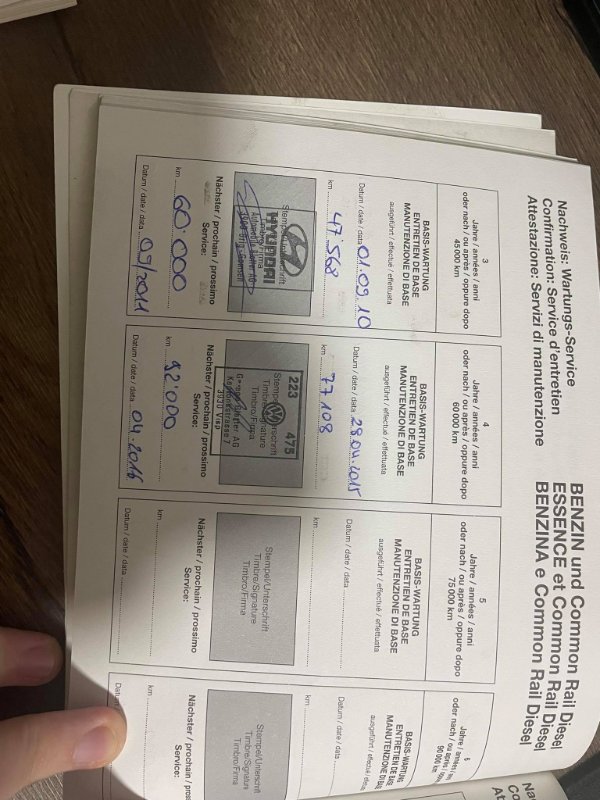 Nachweis: Wartungs-Service
Confirmation: Service d'entretien
Attestazione: Servizi di manutenzione
BENZIN und Common Rail Diesel
ESSENCE et Common Rail Diesel
BENZINA e Common Rail Diesel
3
Jahre / années / anni
oder nach / ou après / oppure dopo
45 000 km
BASIS-WARTUNG
ENTRETIEN DE BASE
MANUTENZIONE DI BASE
ausgeführt / effectué / effettuata
Datum / date / data 01.09.10
km 47'568
Stempel/Unterschrift
Timbre/Signature
Timbro/Firma
HYUNDAI
Nächster / prochain / prossimo
Service:
km 60'000
Datum / date / data 09/2011
4
Jahre / années / anni
oder nach / ou après / oppure dopo
60 000 km
BASIS-WARTUNG
ENTRETIEN DE BASE
MANUTENZIONE DI BASE
ausgeführt / effectué / effettuata
Datum / date / data 28.04.2015
km 77108
Stempel/Unterschrift
Timbre/Signature
Timbro/Firma
223 475
AG
3930 Visp
Nächster / prochain / prossimo
Service:
km 92'000
Datum / date / data 04.2016
5
Jahre / années / anni
oder nach / ou après / oppure dopo
75 000 km
BASIS-WARTUNG
ENTRETIEN DE BASE
MANUTENZIONE DI BASE
ausgeführt / effectué / effettuata
Datum / date / data
km
Stempel/Unterschrift
Timbre/Signature
Timbro/Firma
Nächster / prochain / prossimo
Service:
km
Datum / date / data
6
Jahre / années /
oder nach / ou après /
90 000 km
BASIS-WARTUNG
ENTRETIEN DE BASE
MANUTENZIONE DI BAS
ausgeführt / effectué / effett
Datum / date / data
km
Stempel/Unterschrift
Timbre/Signature
Timbro/Firma
Nächster / prochain / pross
Service:
km
Datu
Na
Co
At